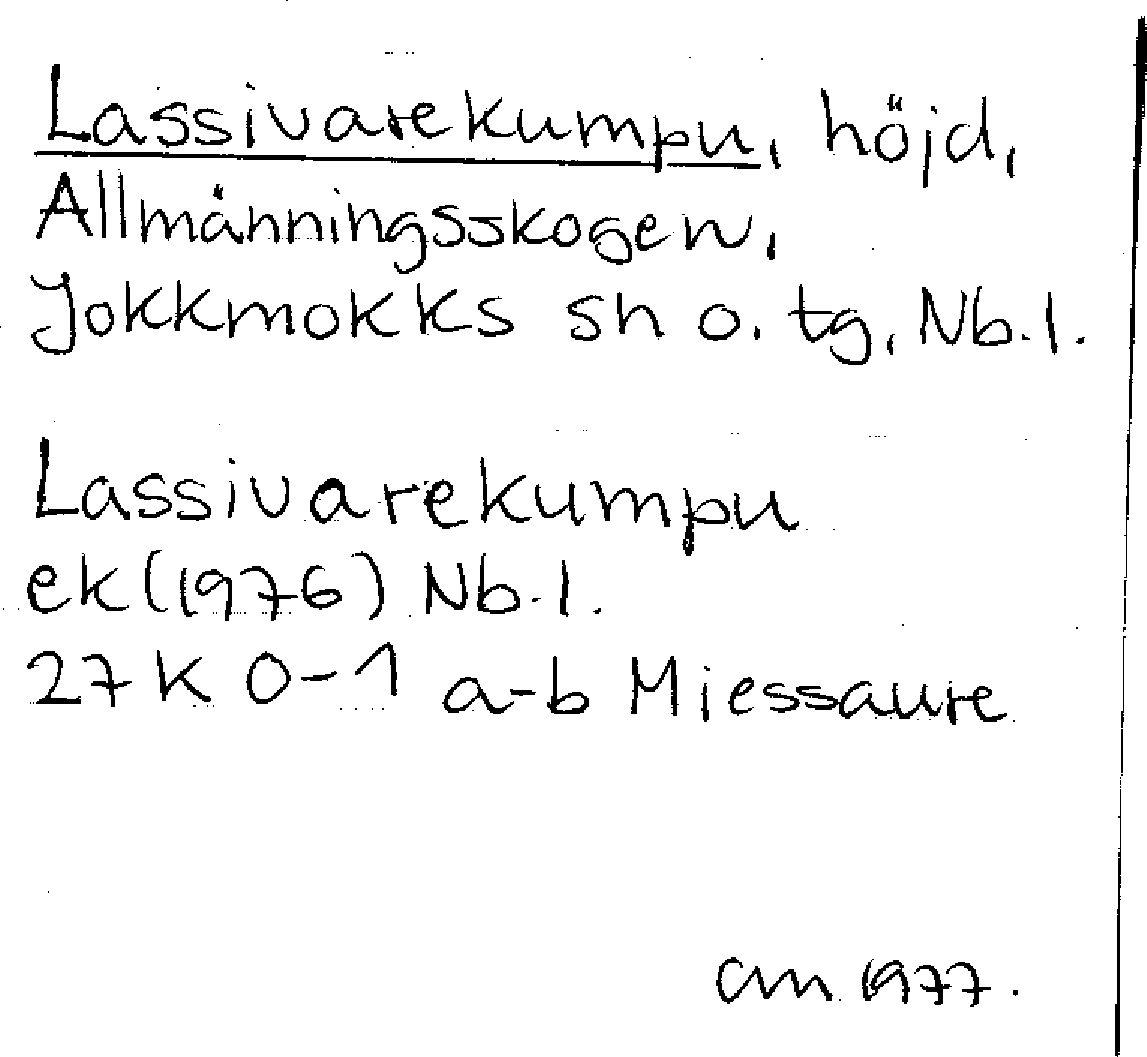 Lassivarekumpu, höjd,
Allmänningsskogen,
Jokkmokks sn o. tg, Nb.l.
Lassivarekumpu
ek (1976) Nb.l.
27K 0-1 a-b Miessaure
CM 1977.